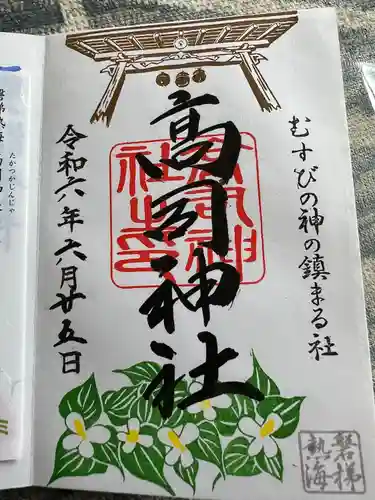 むすびの神の鎮まる社
高司神社
高司神社之印
令和六年六月廿五日
磐梯
熱海
たかつかじんじゃ